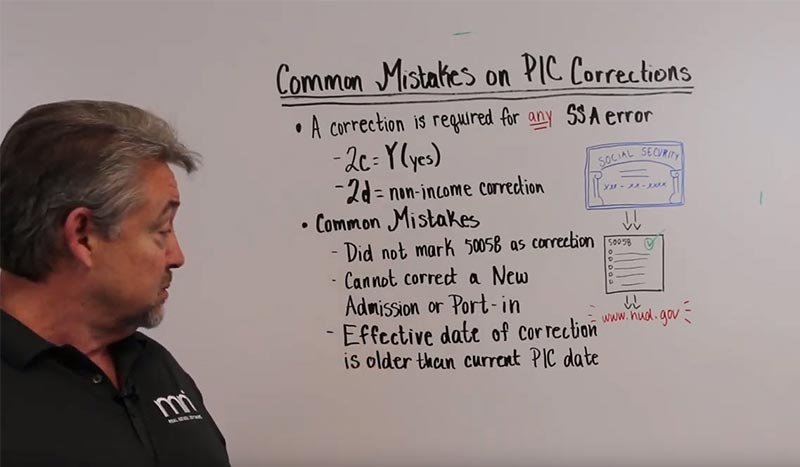 Common Mistakes on PIC Corrections
• A correction is required for any SSA error
- 2c = Y (yes)
- 2d = non-income correction
• Common Mistakes
- Did not mark 50058 as correction
- Cannot correct a New
Admission or Port-in
- Effective date of correction
is older than current PIC date
SOCIAL SECURITY
xxx - xx - xxxx
50058
www.hud.gov
mri
REAL ESTATE SOFTWARE